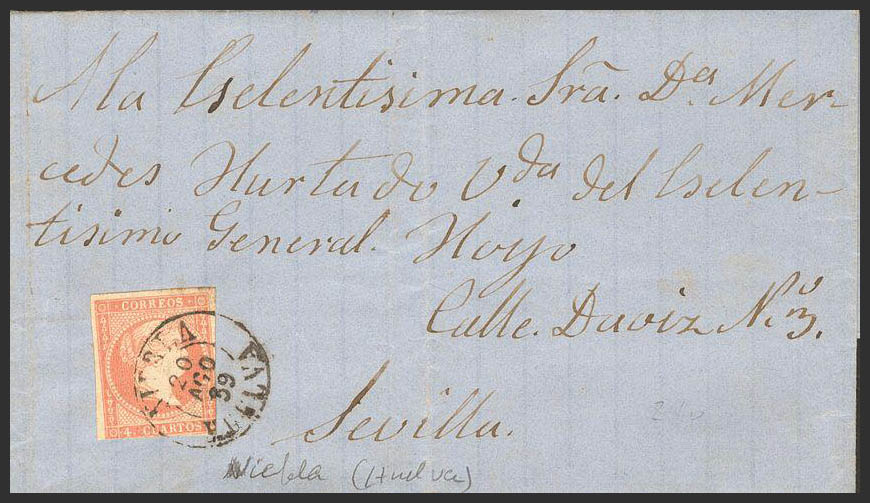 A la Eselentisima. Srã. Dª Mer-
cedes Hurtado Vda del Eselen-
tisimo General. Hoyo
Calle. Daviz N.º 3.
Sevilla.
CORREOS
4 CUARTOS
NIEBLA
20
AGO
59
HUELVA
Niebla (Huelva)